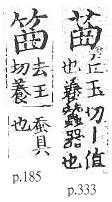 䒼
丘玉切｜値
也養蠶器也
p.333
去王
切養
蚕具
也
p.185